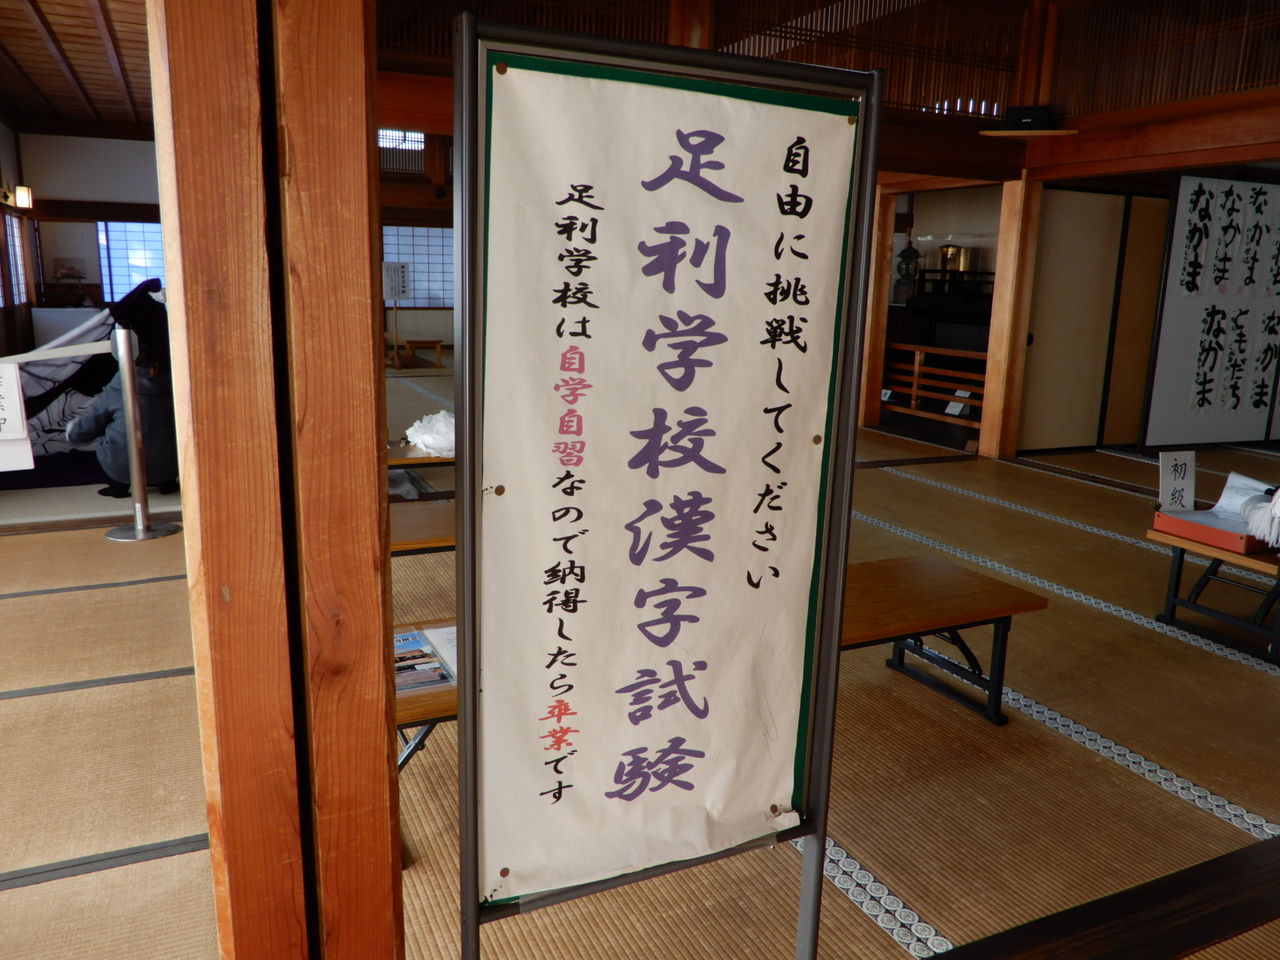 自由に挑戦してください
足利学校漢字試験
足利学校は自学自習なので納得したら卒業です
初級
なかま
なかま
なかま
なかま
ともだち
なかま